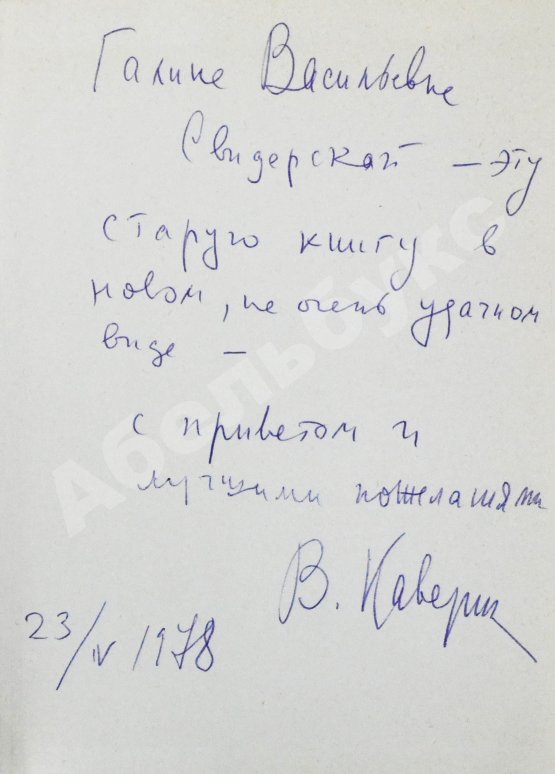 Галине Васильевне
Свидерской — эту
старую книгу в
новом, не очень удачном
виде —
с приветом и
лучшими пожеланиями
В. Каверин
23/IV 1978
Абольбукс